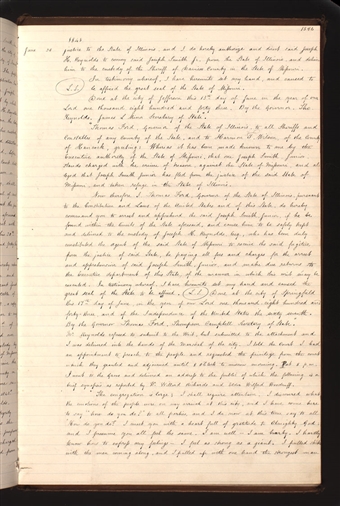 1843
June 30
justice to the State of Illinois, and I do hereby authorize and direct said Joseph
H. Reynolds to convey said Joseph Smith Jr. from the State of Illinois, and deliver
him to the custody of the Sheriff of Daviess County in the State of Missouri.
In testimony whereof, I have hereunto set my hand, and caused to
be affixed the great seal of the State of Missouri.
Done at the city of Jefferson this 13th day of June in the year of our
Lord one thousand eight hundred and forty three. By the Governor, Tho.
Reynolds, James L. Minor Secretary of State.
Thomas Ford, Governor of the State of Illinois, to all Sheriffs and
Constables of any county of the State, and to Harmon T. Wilson of the County
of Hancock, greeting: Whereas it has been made known to me by the
Executive authority of the State of Missouri, that one Joseph Smith Junior
stands charged with the crime of treason against the State of Missouri, and
that Joseph Smith Junior, has fled from the justice of the said State of
Missouri, and taken refuge in the State of Illinois.
Now therefore I, Thomas Ford, Governor of the State of Illinois, pursuant
to the Constitution and Laws of the United States and of this State, do hereby
command you to arrest and apprehend the said Joseph Smith Junior, if he be
found within the limits of the State aforesaid, and cause him to be safely kept
and delivered to the custody of Joseph H. Reynolds Esq. who has been duly
constituted the agent of the said State of Missouri to receive the said fugitive
from the justice of said State, he paying all fees and charges for the arrest
and apprehension of said Joseph Smith, Junior, and make due returns to
the Executive department of this State, of the manner in which this writ may be
executed. In testimony whereof, I have hereunto set my hand and caused the
great seal of the State to be affixed. (L.S.) Done at the city of Springfield
this 17th day of June, in the year of our Lord one thousand eight hundred and
forty-three, and of the Independence of the United States the sixty seventh.
By the Governor Thomas Ford, Thompson Campbell Secretary of State.
Mr. Reynolds refused to submit to the Writ, but submitted to the attachment and
I was delivered into the hands of the Marshal of the city. I told the court I had
an appointment to preach to the people and requested the privilege from the court
which they granted and adjourned until 8 o'clock to-morrow morning.
I went to the Grove and delivered an address to the public of which the following is a
brief synopsis as reported by Dr. Willard Richards and Elder Wilford Woodruff.
"The congregation is large, I shall require attention. I discovered what
the emotions of the people were, on my arrival at this city, and I have come here
to say "how do you do?" to all parties and I do now at this time say to all
"How do you do?" I meet you with a heart full of gratitude to Almighty God:
and I presume you all feel the same. I am well — I am hearty. I hardly
know how to express my feelings. I feel as strong as a giant. I pulled sticks
with the men coming along, and I pulled up with one hand the strongest man